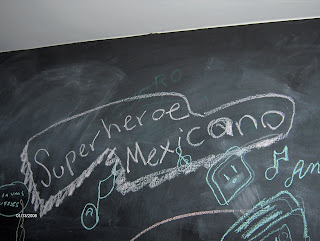 RO
Superheroe
Mexicano
am
A